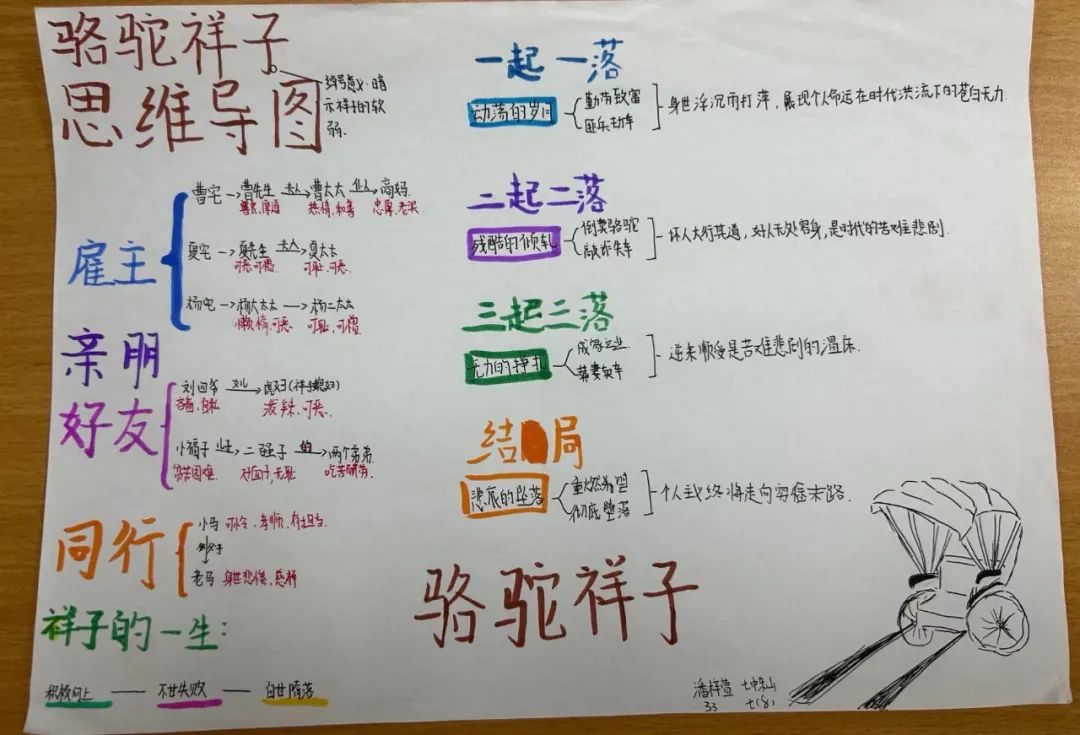 骆驼祥子
思维导图
绰号意义:暗
示祥子的软
弱.
雇主
曹宅 → 曹先生 夫人→ 曹太太 → 高妈.
善良,厚道 热情,和善 忠厚,老实.
夏宅 → 夏先生 夫人→ 夏太太
可恶,可憎 可耻,可恶.
杨宅 → 杨太太 → 杨二太太
懒惰,可恶 可耻,可憎.
亲朋
好友
刘四爷 女儿→ 虎妞(祥子媳妇)
自私 泼辣,可恶.
小福子 → 二强子 的→ 两个弟弟.
贫苦困难. 无耻 吃苦
同行
小马 可怜,孝顺,有担当.
老马 身世悲惨,慈祥
祥子的一生:
积极向上 — 不甘失败 — 自甘堕落
一起一落
动荡的岁月
勤劳致富
匪兵劫车
身世浮沉雨打萍,展现个人命运在时代洪流下的苍白无力.
二起二落
残酷的倾轧
倒卖骆驼
敲诈失车
坏人大行其道,好人无处容身,是时代的苦难悲剧.
三起三落
无力的挣扎
成家立业
葬妻卖车
逆来顺受是苦难悲剧的温床.
结局
的坠落
重燃希望
彻底堕落
个人主义终将走向穷途末路.
骆驼祥子
潘梓萱
33 七(8)